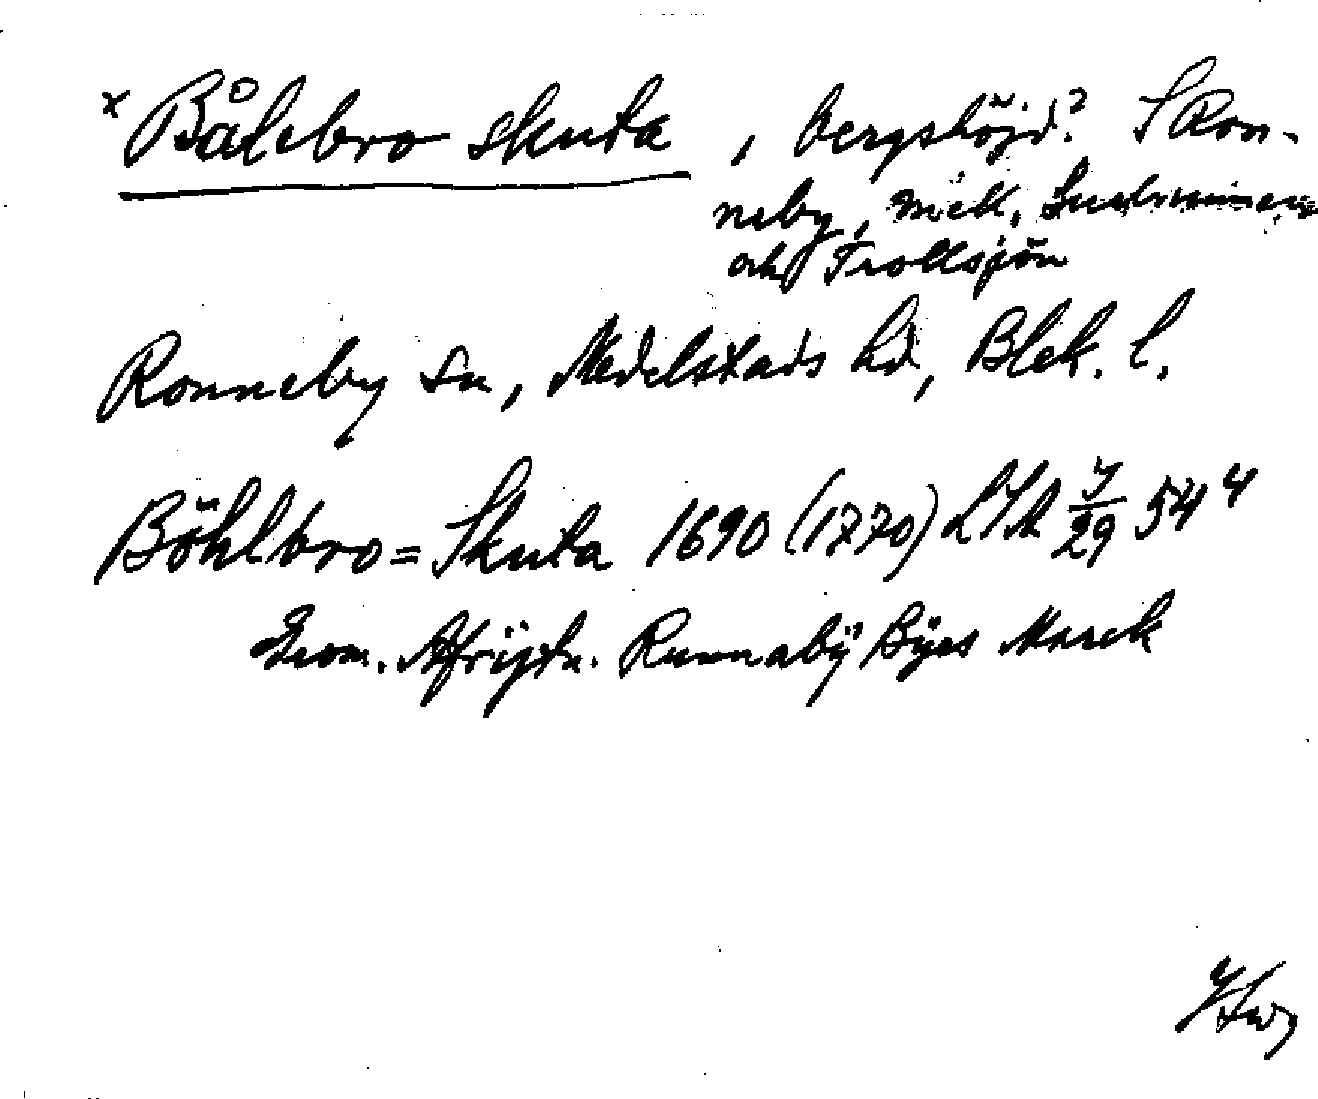 x Bålebro skuta, bergshöjd? S Ron-
neby, mell,
och Trollsjön
Ronneby sn, Medelstads hd, Blek. l.
Böhlbro=Skuta 1690 (1770) LSA 54 4
Geom. Afrijtn. Runnabÿ Bÿes Marck